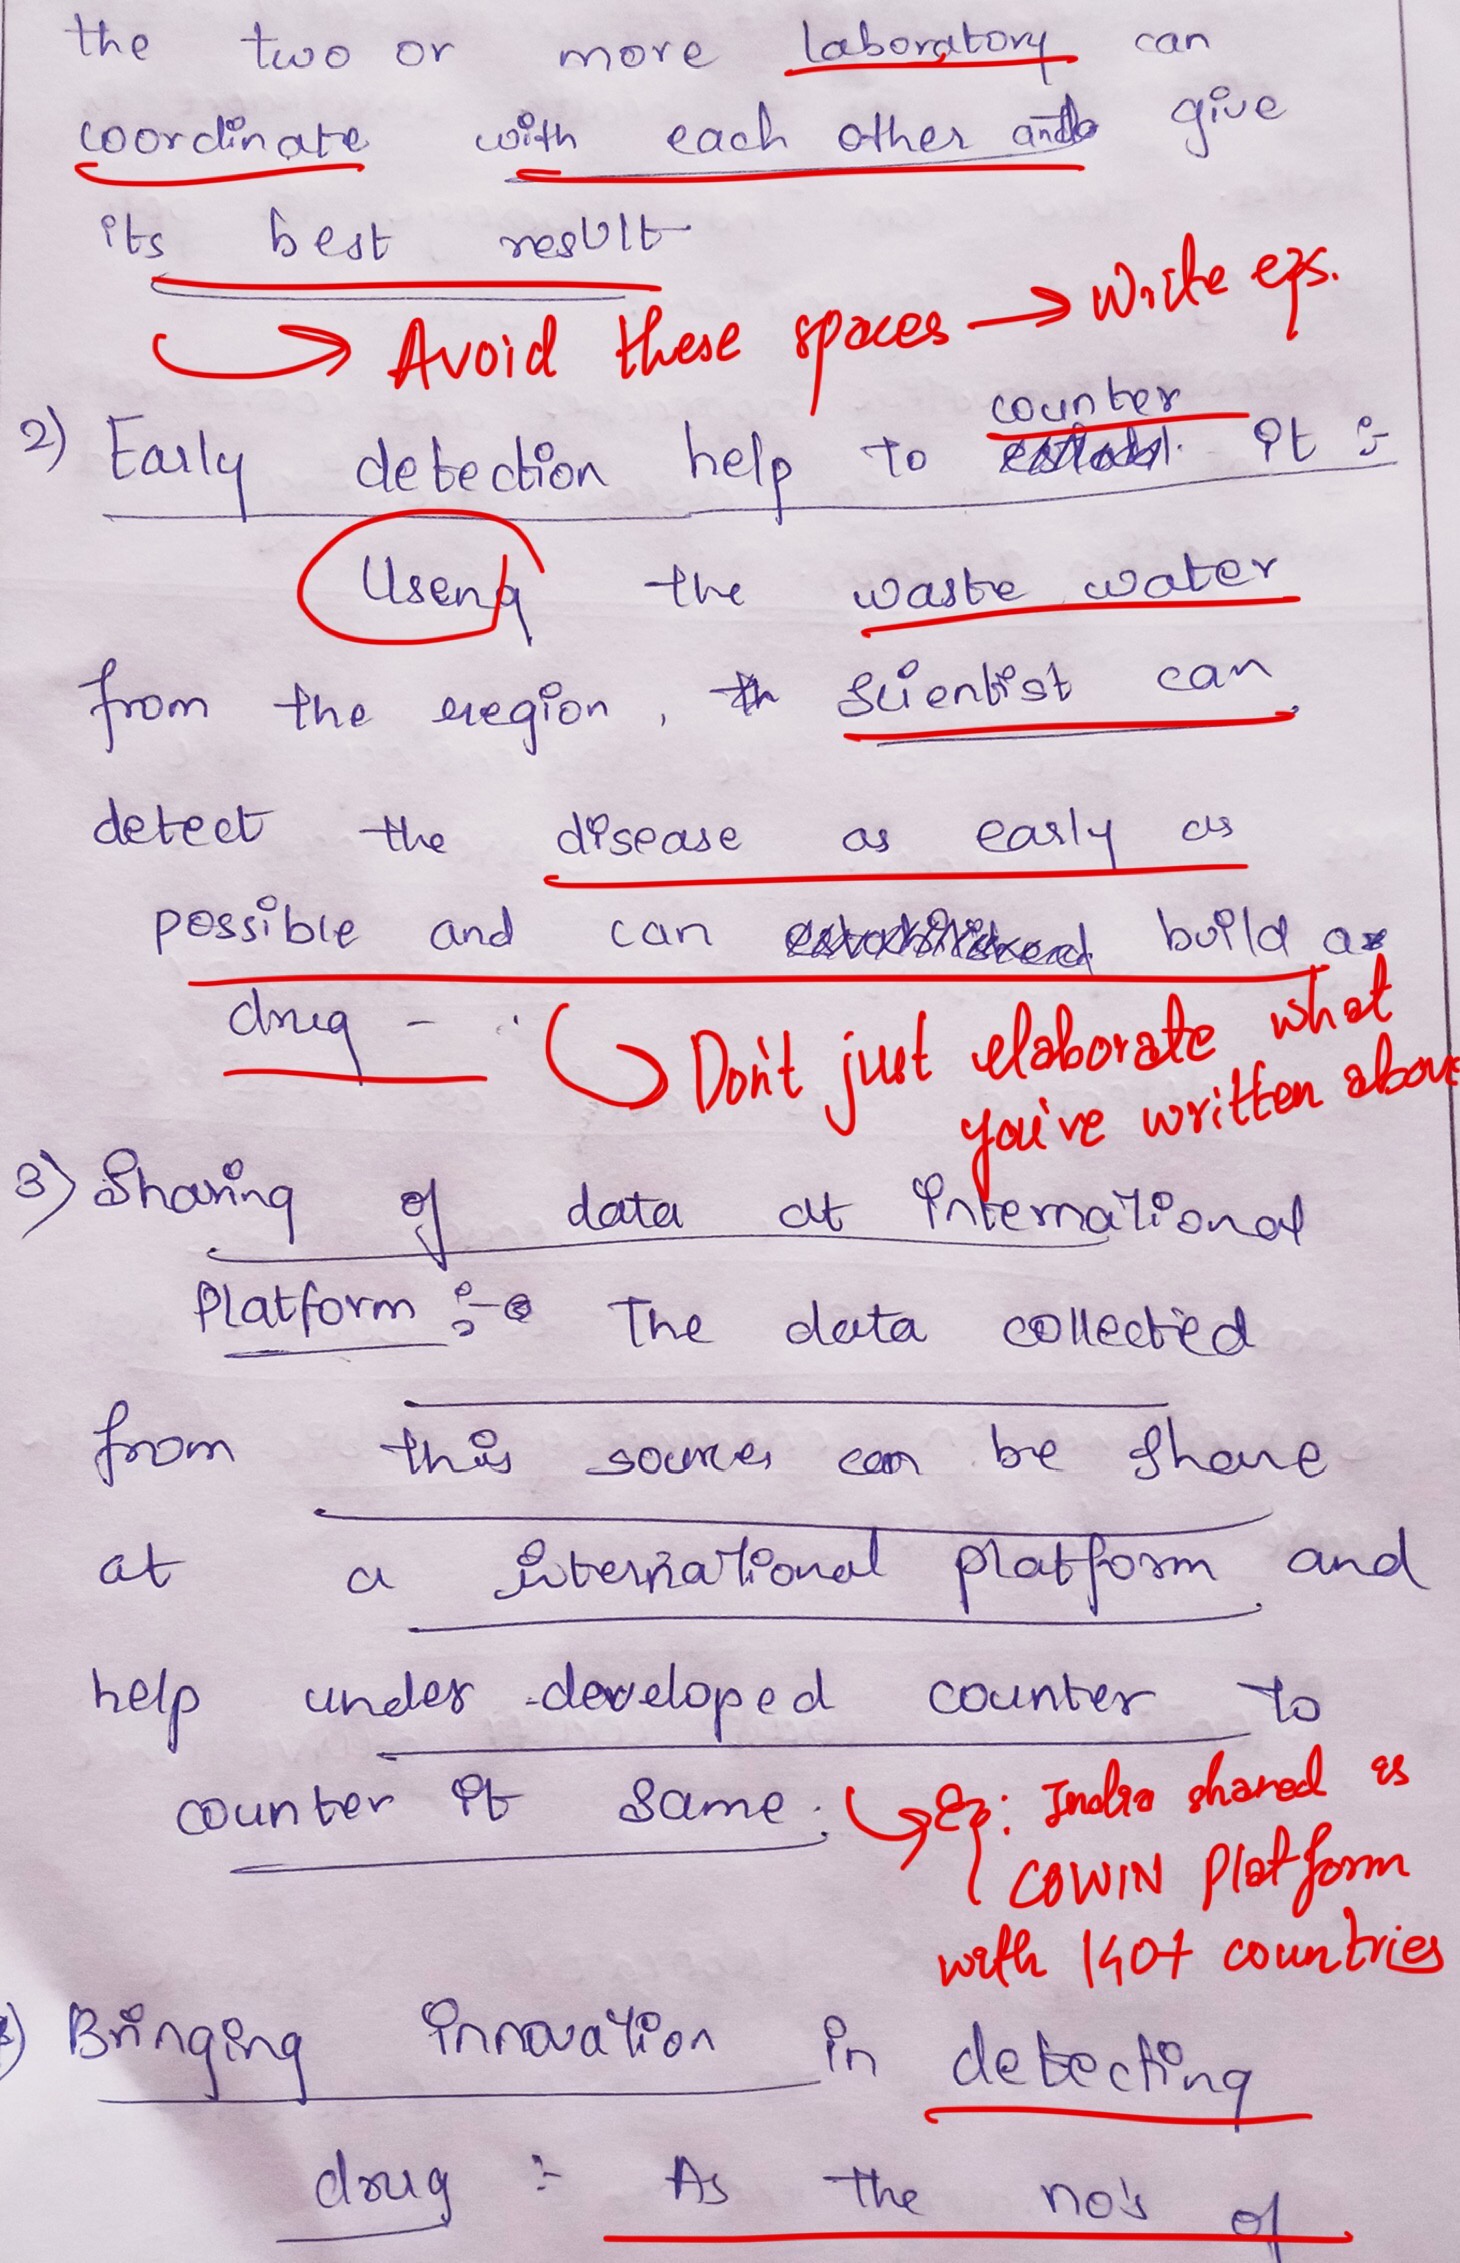 the two or more laboratory can
coordinate with each other and give
its best result
Avoid these spaces → Write egs.
counter
2) Early detection help to it :-
Useng the waste water
from the region, th scientist can
detect the disease as early as
possible and can build a
drug - .
Don't just elaborate what
you've written above
3) Sharing of data at international
Platform :- The data collected
from this sources can be share
at a international platform and
help under-developed counter to
counter it same.
Eg: India shared its
COWIN Platform
with 140+ countries
) Bringing innovation in detecting
drug :- As the no's of